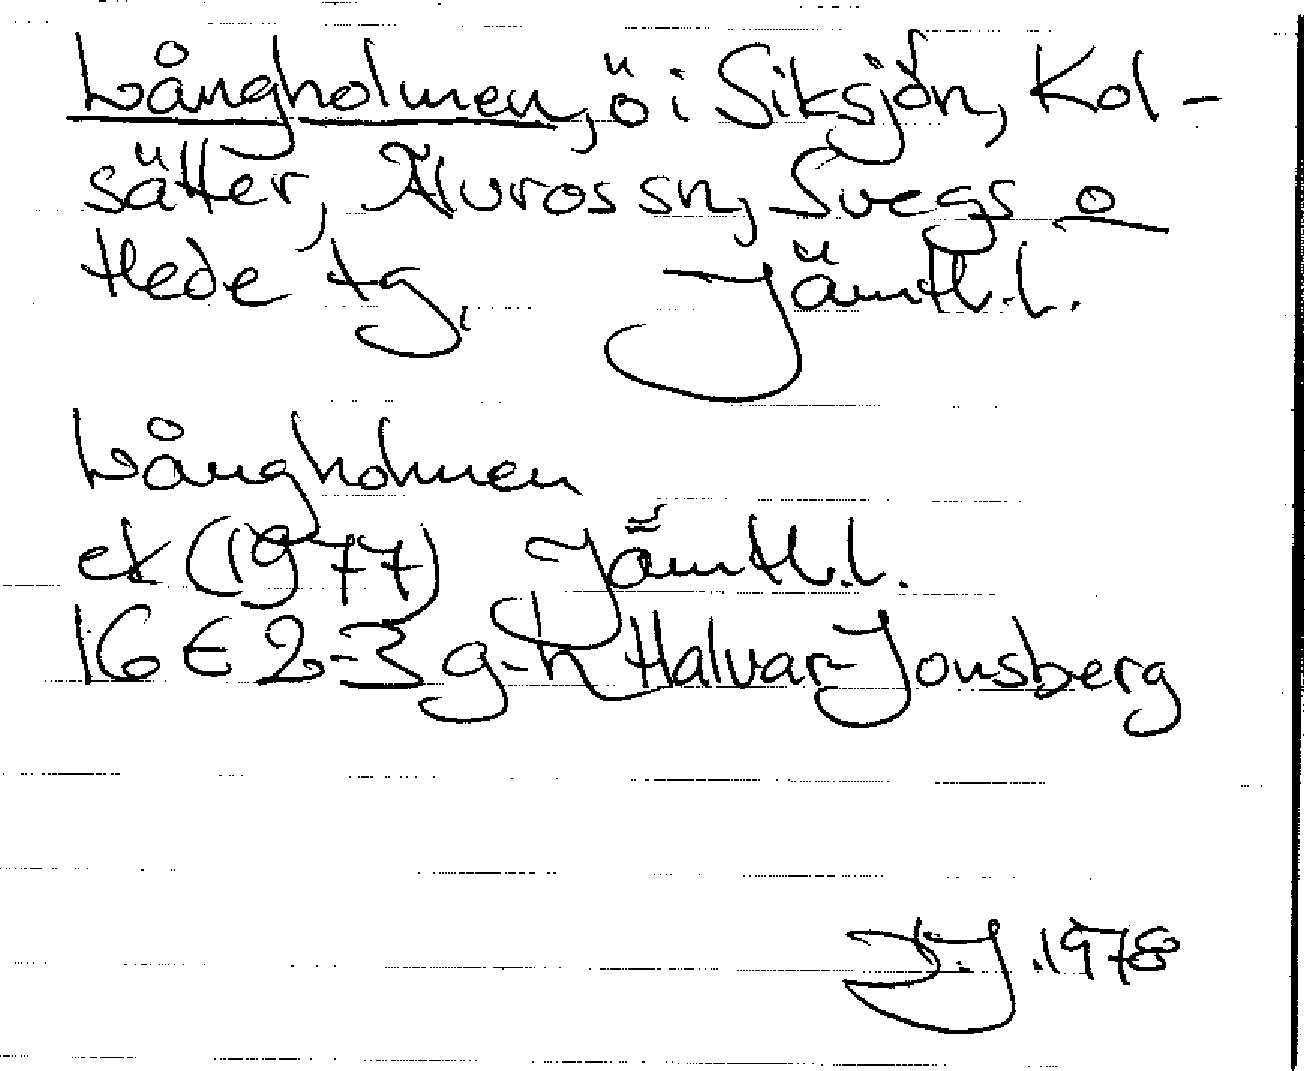 Långholmen, ö i Siksjön, Kol-
sätter, Älvros sn, Svegs o
Hede tg, Jämtl.l.
Långholmen
ek (1977) Jämtl.l.
16E 2-3 g-h Halvar Jonsberg
D.J. 1978